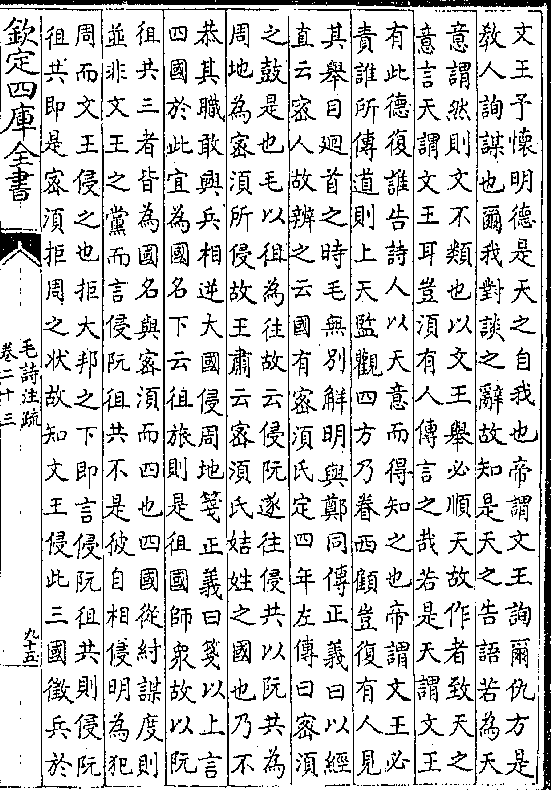 文王予懷明德是天之自我也帝謂文王詢爾仇方是
教人詢謀也爾我對談之辭故知是天之告語若為天
意謂然則文不類也以文王舉必順天故作者致天之
意言天謂文王耳豈須有人傳言之哉若是天謂文王
有此德復誰告詩人以天意而得知之也帝謂文王必
責誰所傳道則上天監觀四方乃眷西顧豈復有人見
其舉目廻首之時毛無別解明與鄭同傳正義曰以經
直云密人故辨之云國有密須氏定四年左傳曰密須
之鼓是也毛以徂為往故云侵阮遂往侵共以阮共為
周地為密須所侵故王肅云密須氏姞姓之國也乃不
恭其職敢興兵相逆大國侵周地箋正義曰箋以上言
四國於此宜為國名下云徂旅則是徂國師衆故以阮
徂共三者皆為國名與密須而四也四國從紂謀度則
並非文王之黨而言侵阮徂共不是彼自相侵明為犯
周而文王侵之也拒大邦之下即言侵阮徂共則侵阮
徂共即是密須拒周之狀故知文王侵此三國徵兵於
欽定四庫全書
毛詩注疏
卷二十三
九十五